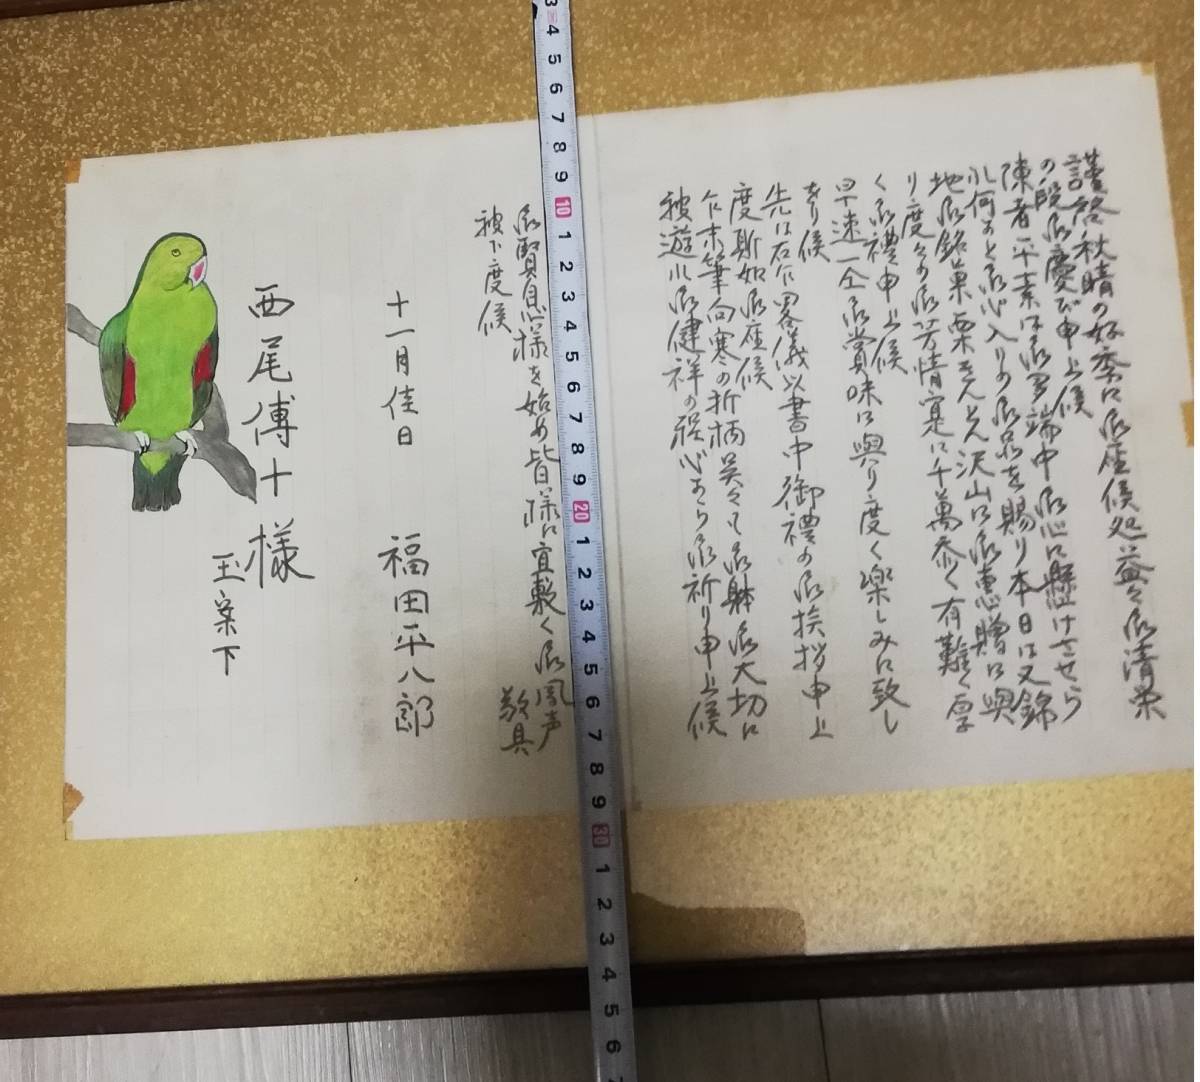 謹啓秋晴の好季に御座候処益々御清栄
の段御慶び申上候
陳者平素は御多端中御心に懸けさせら
れ何かと御心入りの御品を賜り本日は又錦
地御銘菓栗きんとん沢山に御恵贈に興
り度々の御芳情寔に千萬忝く有難く厚
く御禮申上候
早速一仝御賞味に興り度く楽しみに致し
をり候
先は右乍畧儀以書中御禮の御挨拶申上
度斯如御座候
乍末筆向寒の折柄呉々も御躰御大切に
被遊れ御健祥の程心から御祈り申上候
御賢息様を始め皆様に宜敷く御鳳声
被下度候
敬具
十一月佳日
福田平八郎
西尾傅十様
玉案下
3 4 5 6 7 8 9 10 1 2 3 4 5 6 7 8 9 20 1 2 3 4 5 6 7 8 9 30 1 2 3 4 5 6